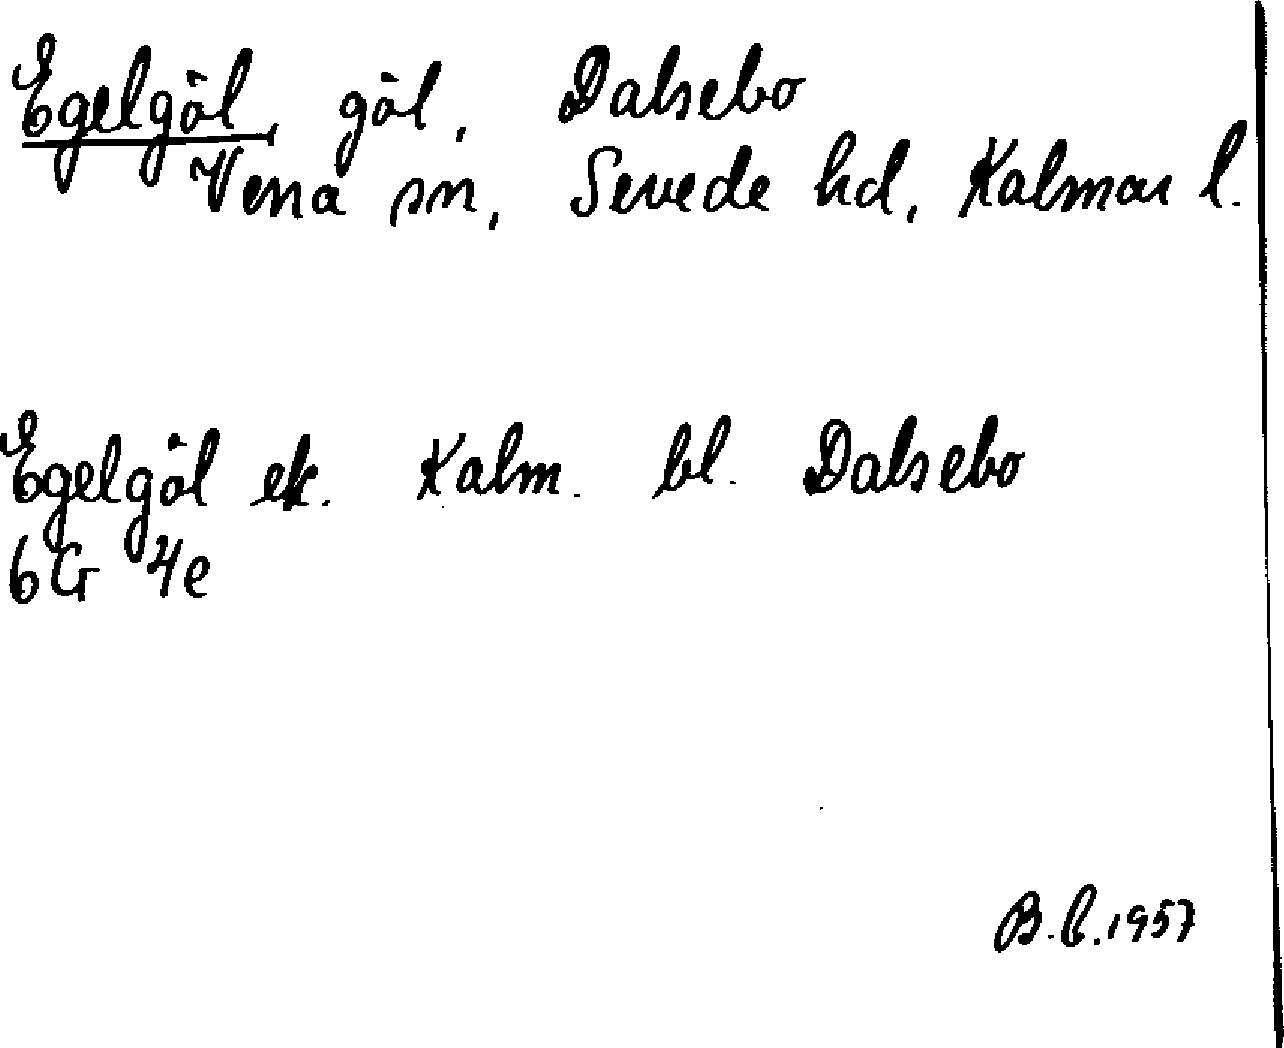 Egelgöl, göl, Dalsebo
Vena sn, Sevede hd, Kalmar l.
Egelgöl ek. Kalm. bl. Dalsebo
6G 4e
B.C. 1957